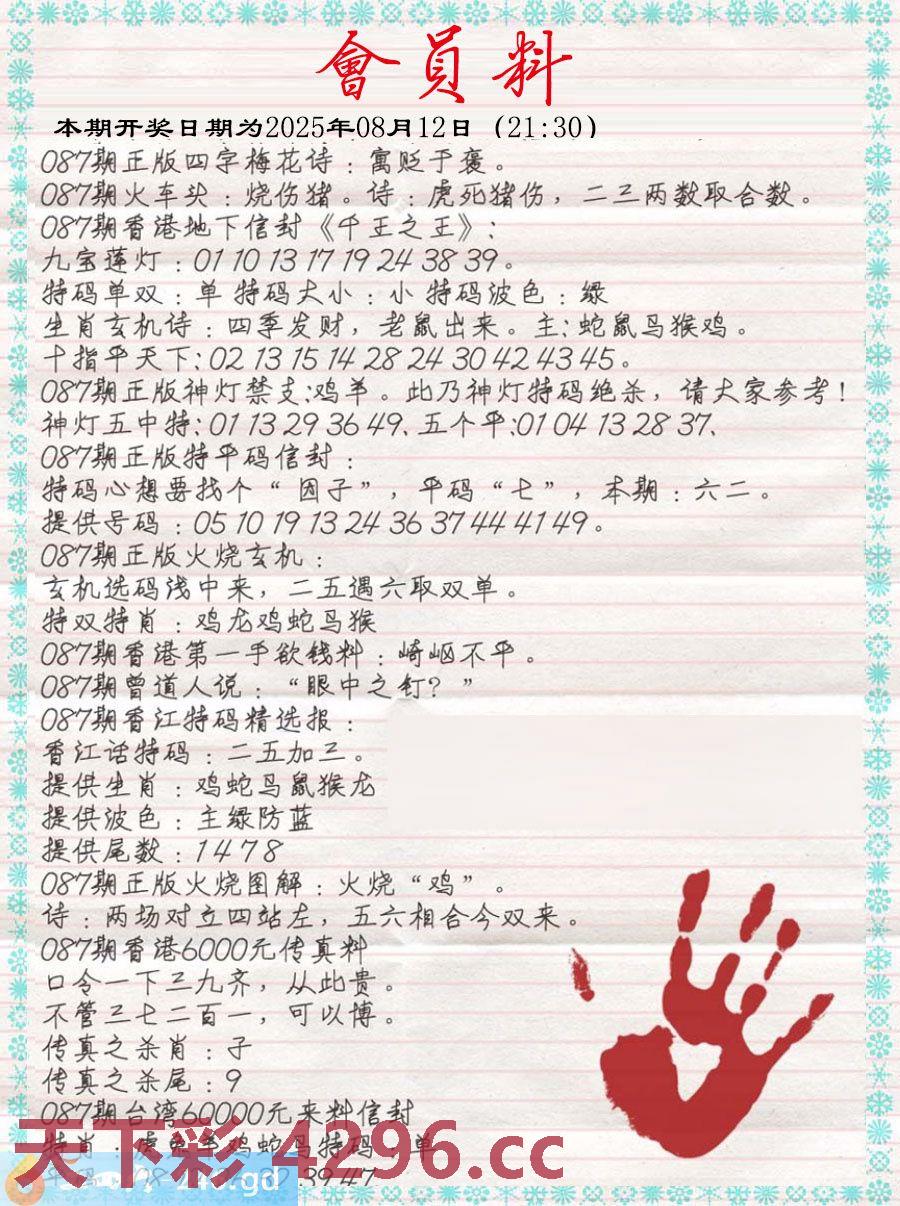 會員料
本期开奖日期为2025年08月12日（21:30）
087期正版四字梅花诗：寓贬于褒。
087期火车头：烧伤猪。诗：虎死猪伤，二三两数取合数。
087期香港地下信封《千王之王》：
九宝莲灯：01 10 13 17 19 24 38 39。
特码单双：单 特码大小：小 特码波色：绿
生肖玄机诗：四季发财，老鼠出来。主：蛇鼠鸟猴鸡。
十指平天下：02 13 15 14 28 24 30 42 43 45。
087期正版神灯禁支：鸡羊。此乃神灯特码绝杀，请大家参考！
神灯五中特：01 13 29 36 49、五个平：01 04 13 28 37、
087期正版特平码信封：
特码心想要找个“因子”，平码“七”，本期：六二。
提供号码：05 10 19 13 24 36 37 44 41 49。
087期正版火烧玄机：
玄机选码浅中来，二五遇六取双单。
特双特肖：鸡龙鸡蛇鸟猴
087期香港第一手欲钱料：崎岖不平。
087期曾道人说：“眼中之钉？”
087期香江特码精选报：
香江话特码：二五加三。
提供生肖：鸡蛇鸟鼠猴龙
提供波色：主绿防蓝
提供尾数：1 4 7 8
087期正版火烧图解：火烧“鸡”。
诗：两场对立四站左，五六相合今双来。
087期香港6000元传真料
口令一下三九齐，从此贵。
不管三七二百一，可以博。
传真之杀肖：子
传真之杀尾：9
087期台湾60000元来料信封
特肖：虎兔羊鸡蛇鸟特码：单
39 47
天下彩 4296.cc
246.gd